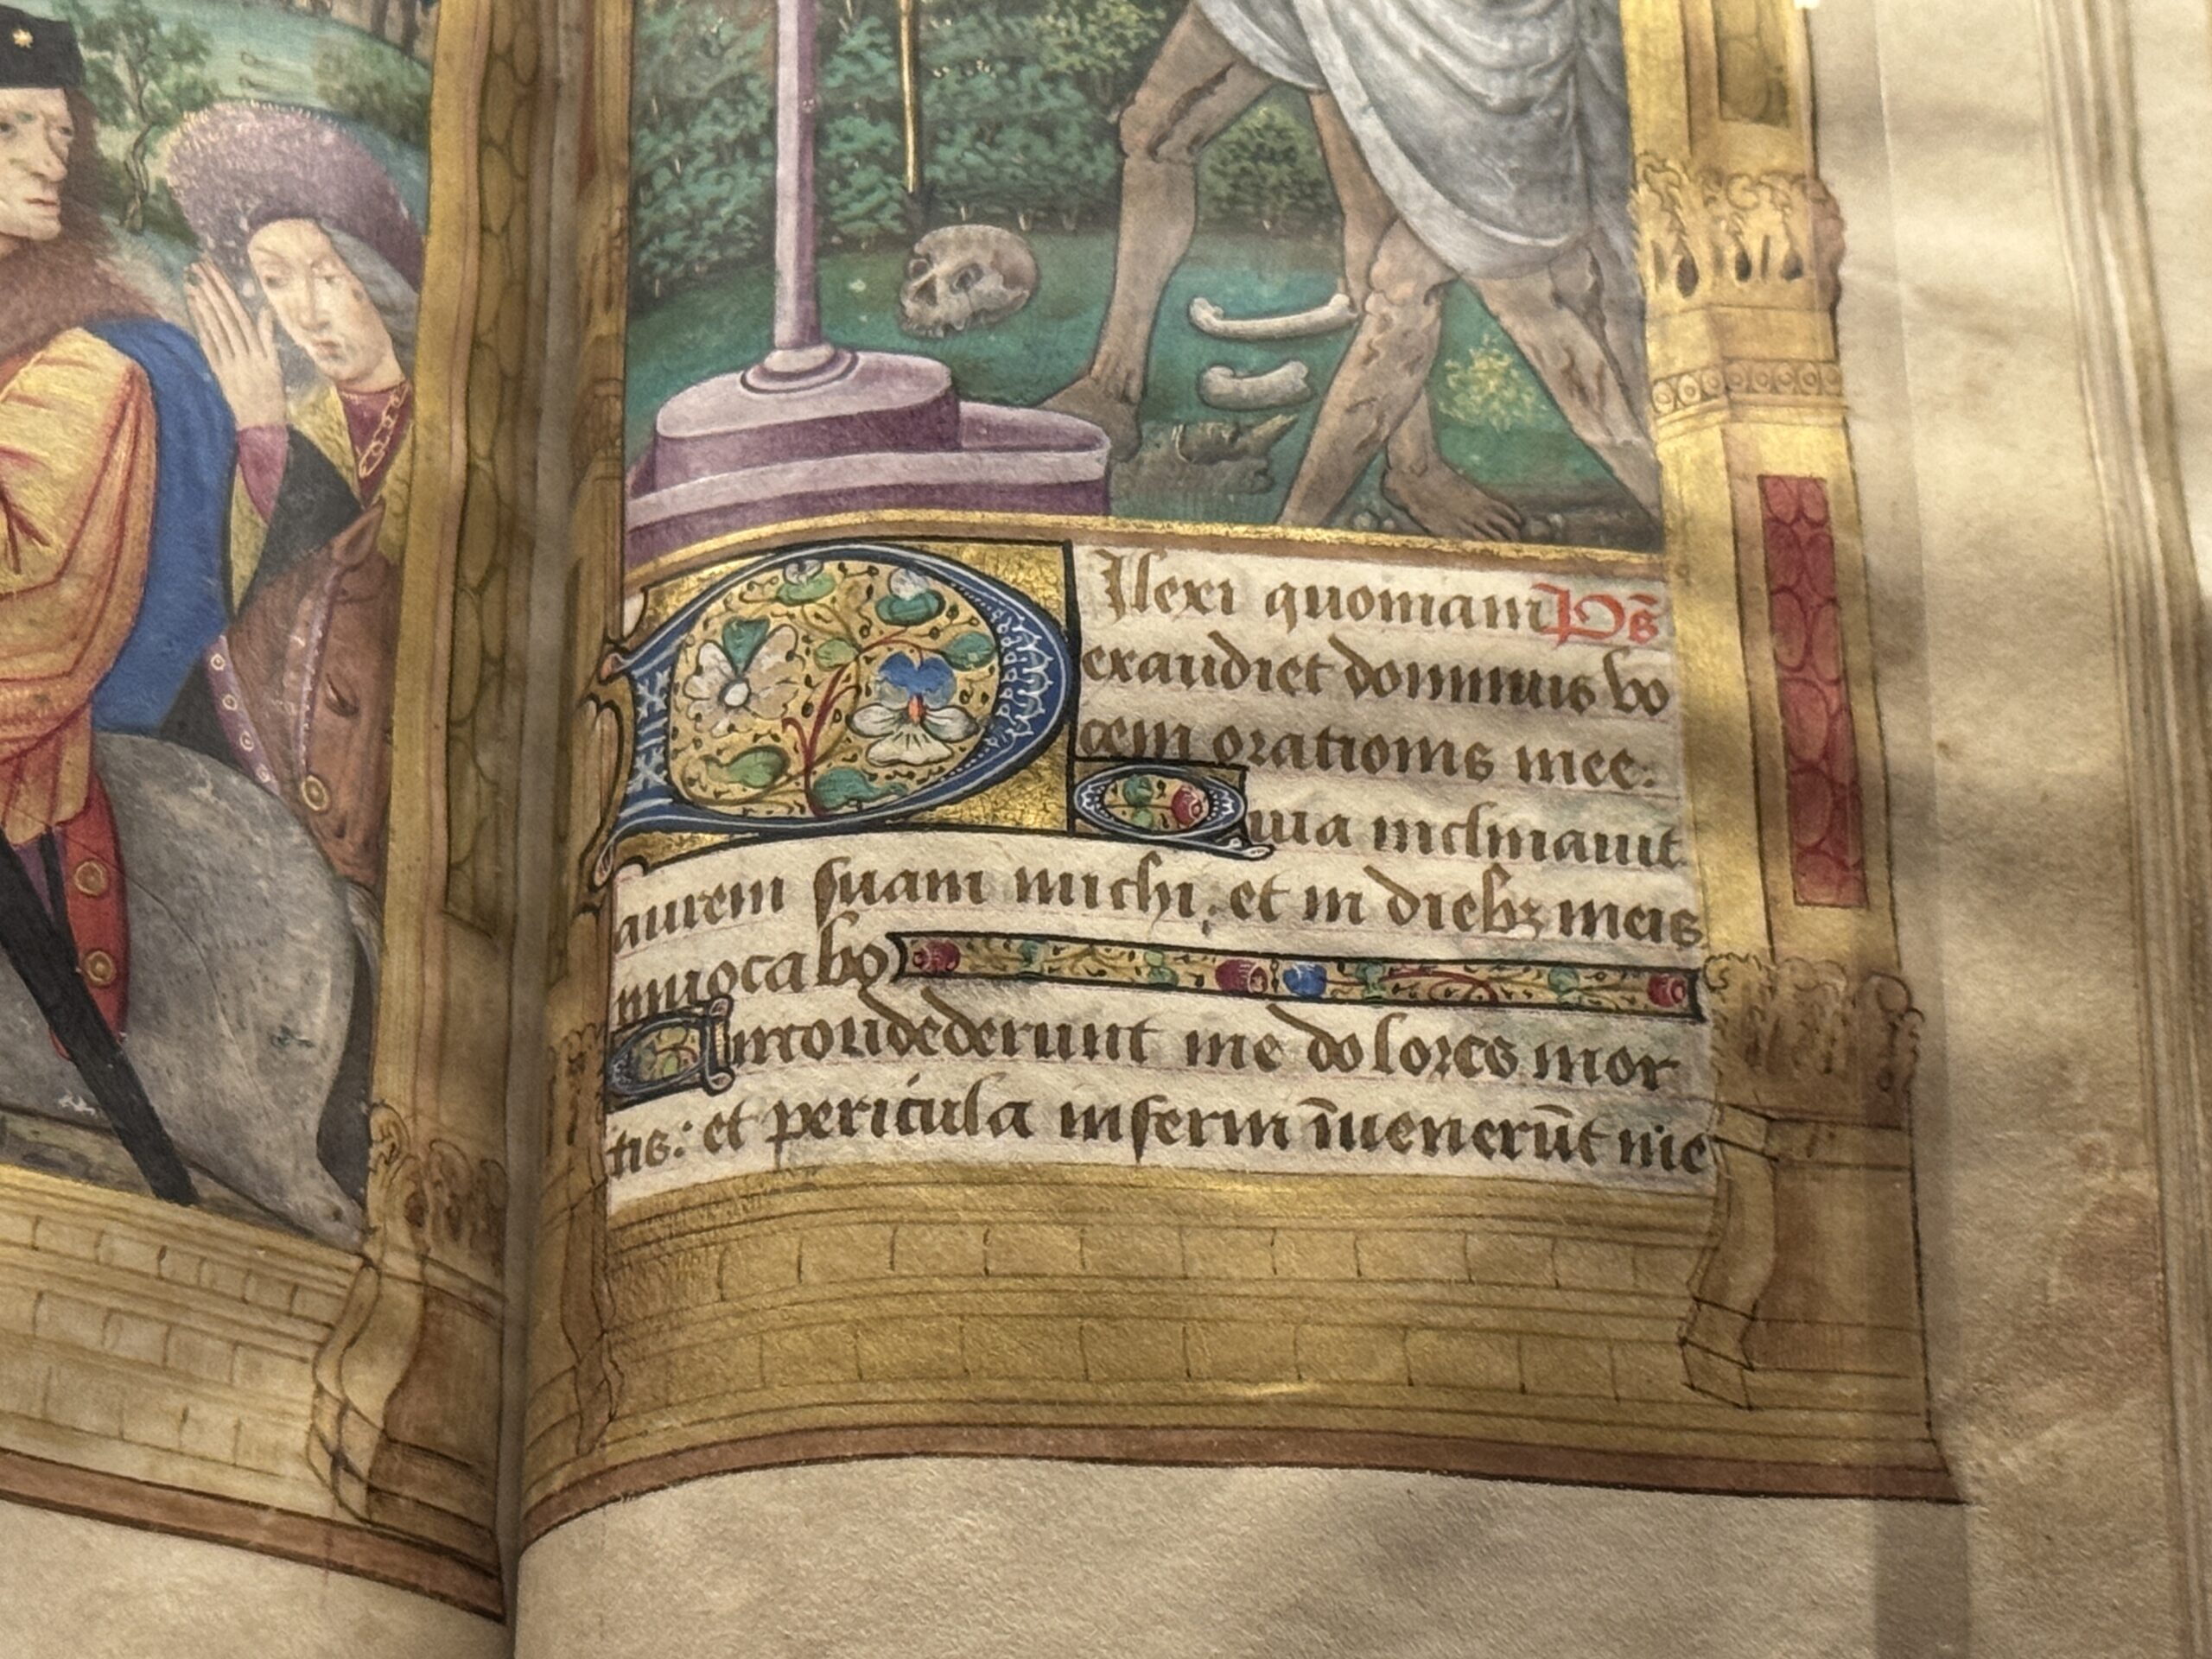 DIlexi quoniam Ps̄
exaudiet dominus vo
cem orationis mee:
Quia inclinauit
aurem suam michi: et in diebꝫ meis
inuocabo
Circondederunt me dolores mor
tis: et pericula inferni īuenerūt me